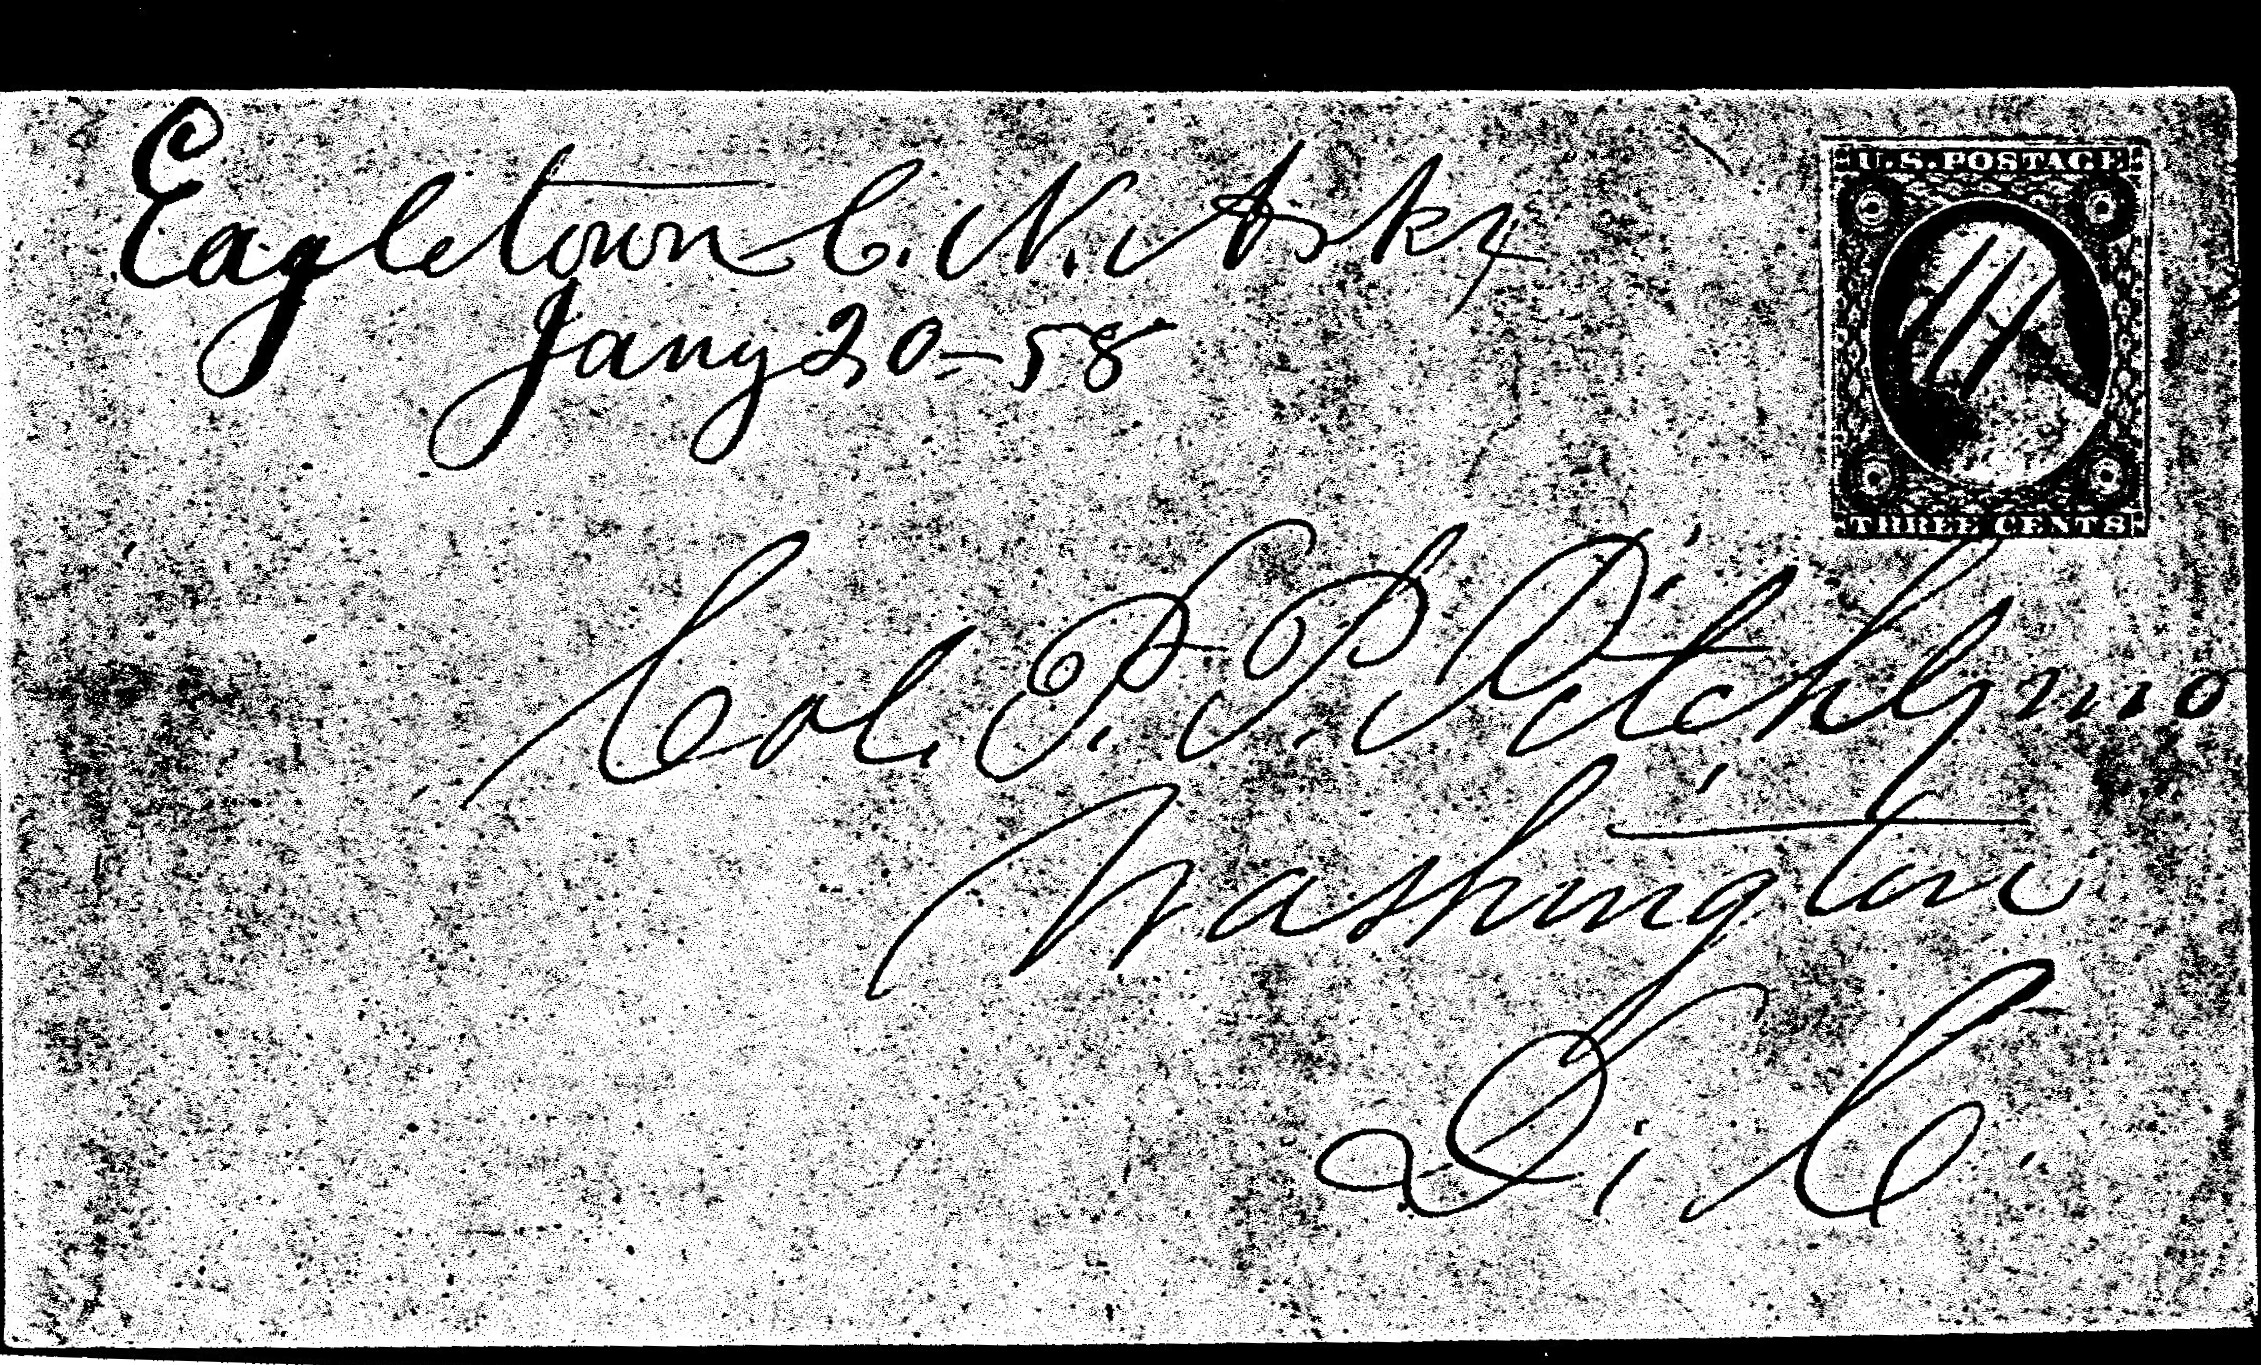 Eagletown C. N. Arks
Jany 20 - 58
U.S. POSTAGE
THREE CENTS
Col. P. P. Pitchlynn
Washington
D. C.